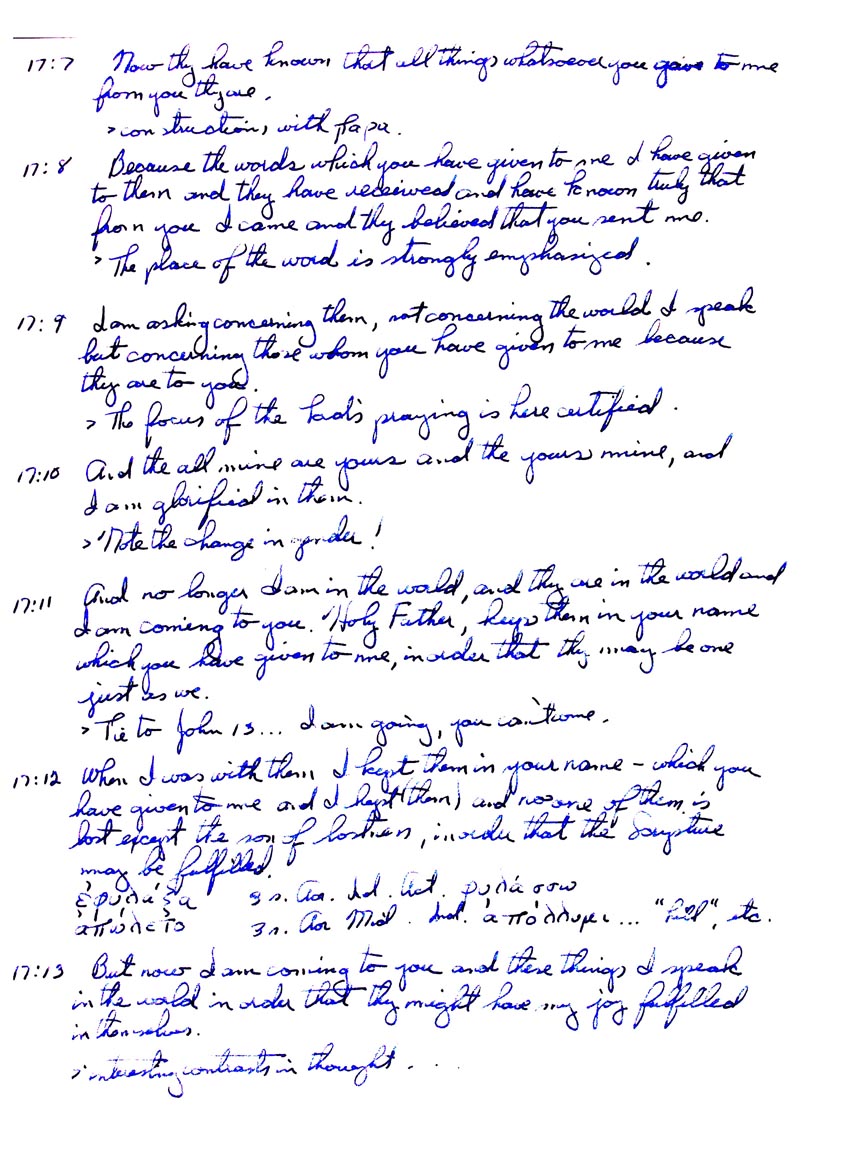 17:7 Now they have known that all things whatsoever you gave to me
from you they are.
> constructions with para.
17:8 Because the words which you have given to me I have given
to them and they have received and have known truly that
from you I came and they believed that you sent me.
> The place of the word is strongly emphasized.
17:9 I am asking concerning them, not concerning the world I speak
but concerning those whom you have given to me because
they are to you.
> The focus of the Lord's praying is here certified.
17:10 And the all mine are yours and the yours mine, and
I am glorified in them.
> Note the change in gender!
17:11 And no longer I am in the world, and they are in the world and
I am coming to you. Holy Father, keep them in your name
which you have given to me, in order that they may be one
just as we.
> Tie to John 13... I am going, you can't come.
17:12 When I was with them I kept them in your name - which you
have given to me and I kept (them) and no one of them is
lost except the son of lostness, in order that the Scripture
may be fulfilled.
ἐφύλαξα 3 s. Aor. Ind. Act. φυλάσσω
ἀπώλετο 3 s. Aor Mid. Ind. ἀπόλλυμι... "kill", etc.
17:13 But now I am coming to you and these things I speak
in the world in order that they might have my joy fulfilled
in themselves.
> interesting contrasts in thought. . .